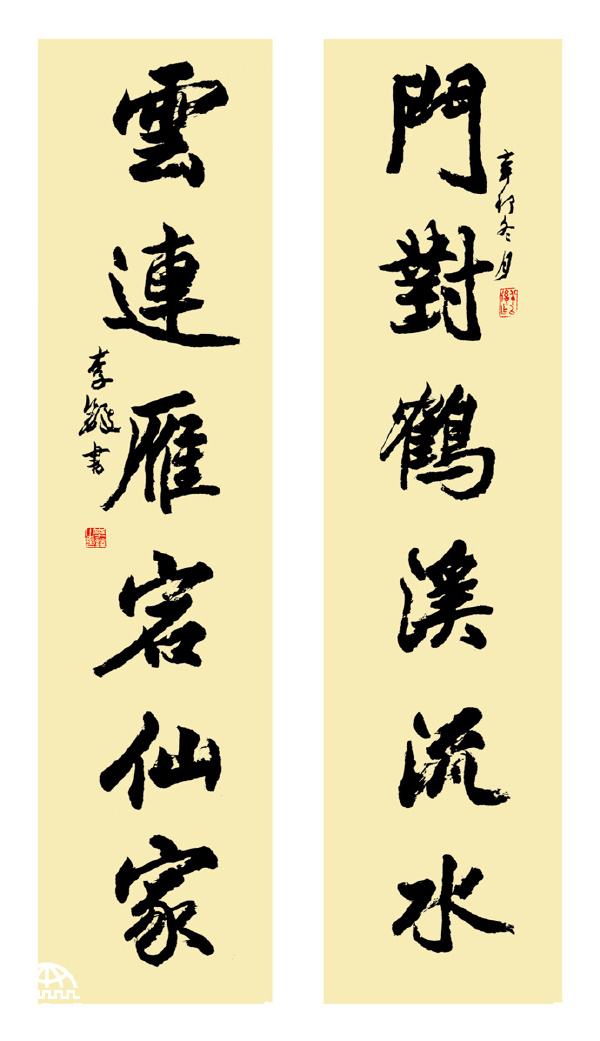 辛卯冬月
門對鶴溪流水
雲連雁宕仙家
李書